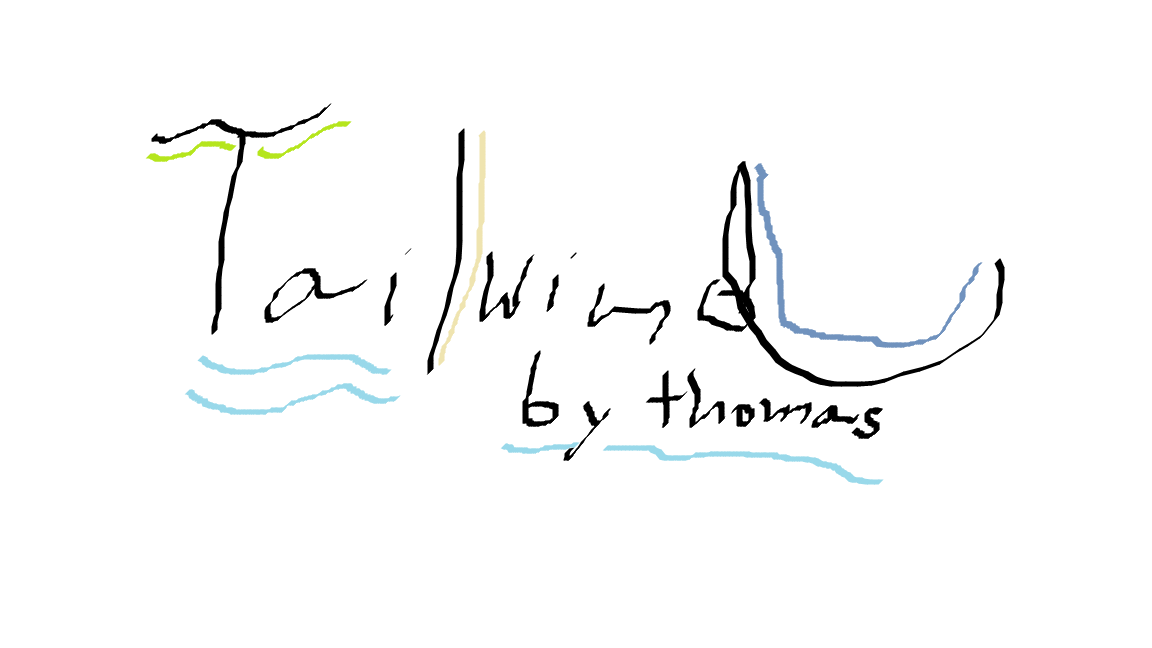 Tailwind
by thomas